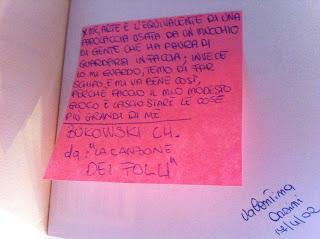 X ME, ARTE È L'EQUIVALENTE DI UNA
PAROLACCIA USATA DA UN MUCCHIO
DI GENTE CHE HA PAURA DI
GUARDARSI IN FACCIA; INVECE
IO MI GUARDO, TEMO DI FAR
SCHIFO, E MI VA BENE COSÌ,
PERCHÉ FACCIO IL MIO MODESTO
GIOCO E LASCIO STARE LE COSE
PIÙ GRANDI DI ME
BUKOWSKI CH.
da: "LA CANZONE
DEI FOLLI"
Valentina